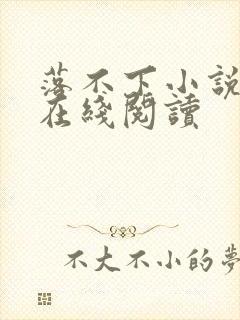 落不下小説
在綫閱讀
不大不小的夢